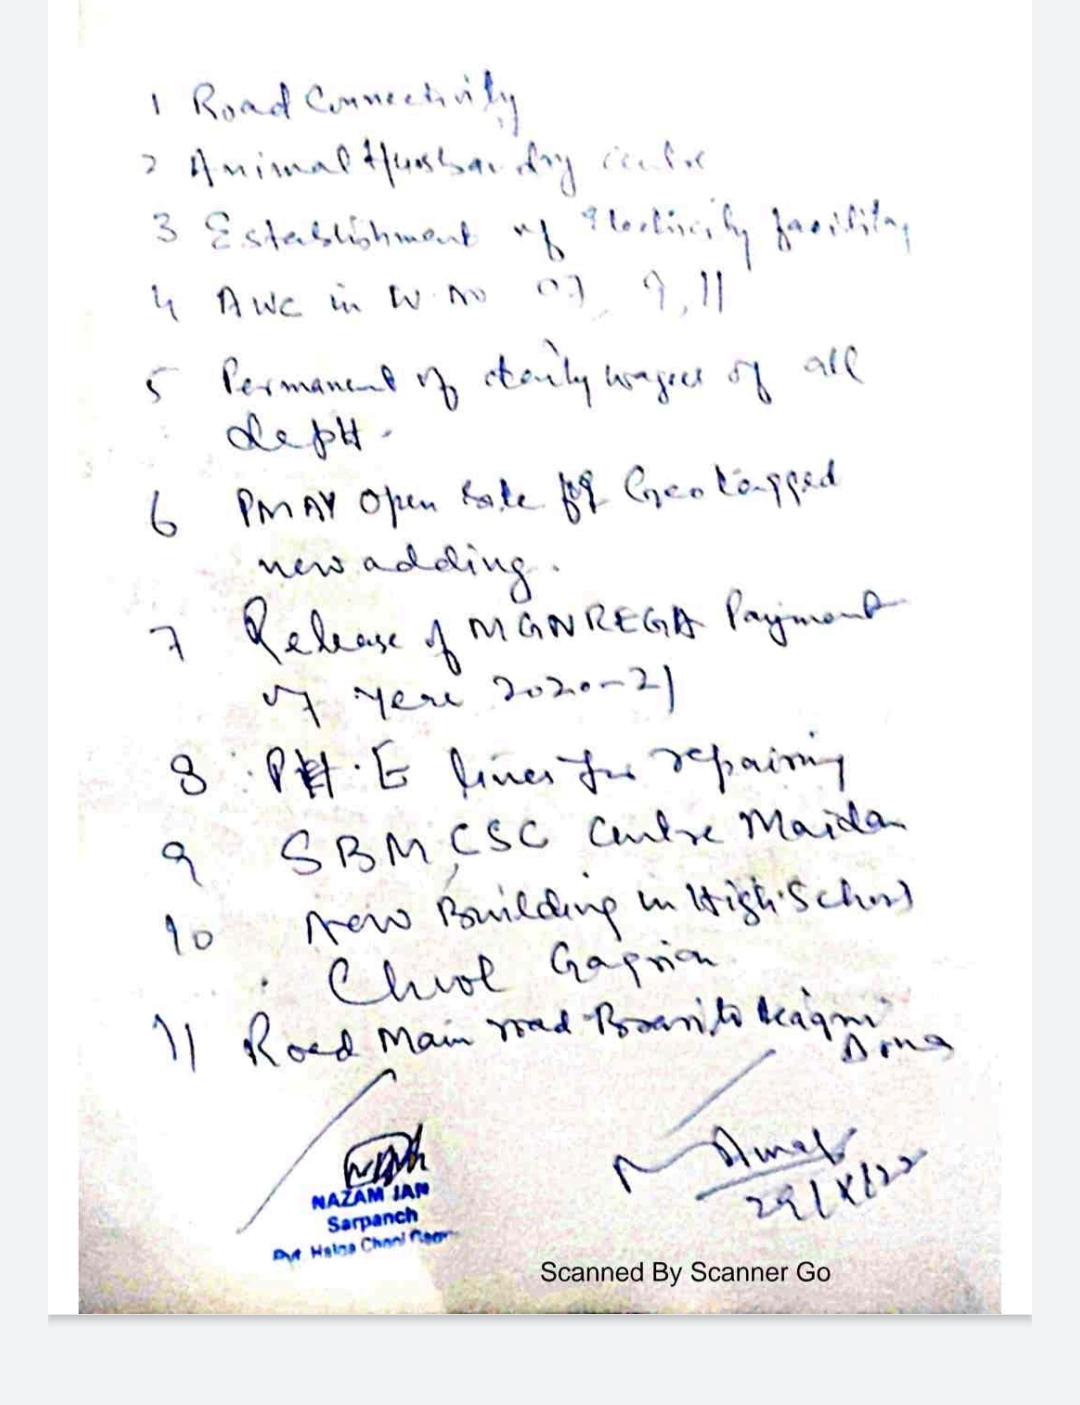 1 Road Connectivity
2 Animal Husbandry centre
3 Establishment of Electricity facility
4 AWC in W. No 07, 9, 11
5 Permanent of daily wages of all
deptt.
6 PMAY Open Site for Geo tagged
new adding.
7 Release of MGNREGA Payment
of year 2020-21
8 PH.E lines for repairing
9 SBM, CSC Centre Maidan
10 New Building in High School
11 Road Main road
NAZAM JAN
Sarpanch
29/X/22
Scanned By Scanner Go